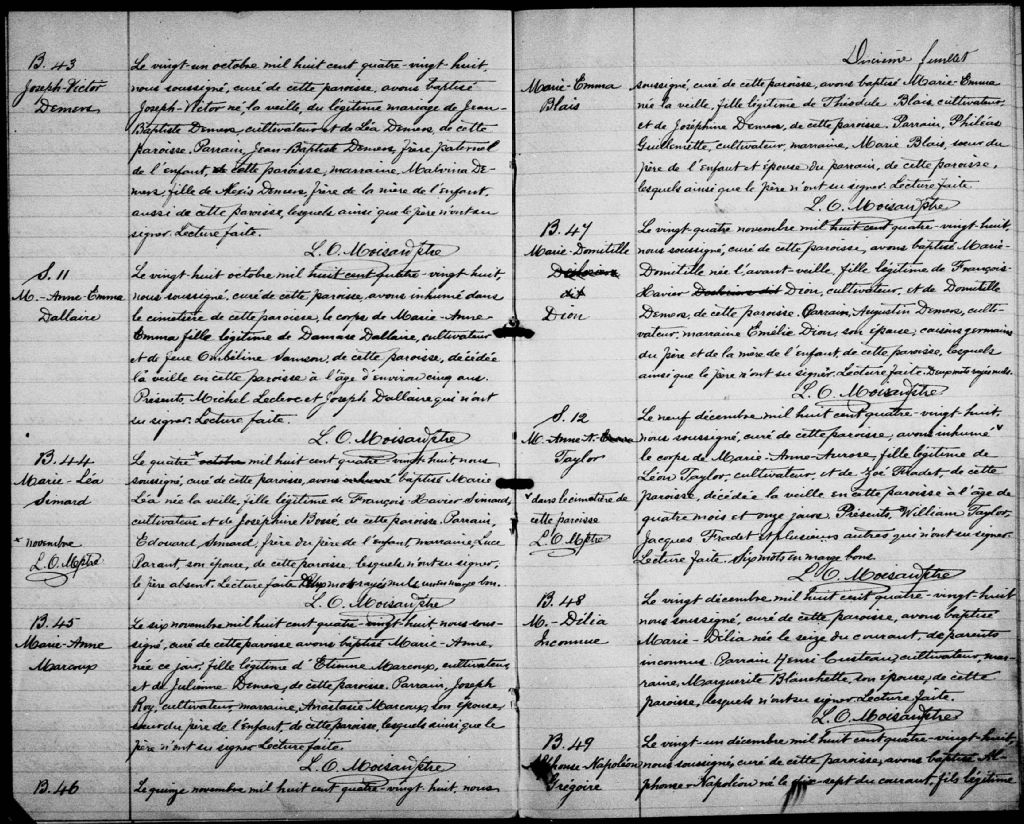 B. 43
Joseph-Victor
Demers
Le vingt-un octobre mil huit cent quatre-vingt huit,
nous soussigné, curé de cette paroisse, avons baptisé
Joseph-Victor né, la veille, du légitime mariage de Jean-
Baptiste Demers, cultivateur et de Léa Demers, de cette
paroisse. Parrain, Jean-Baptiste Demers, frère paternel
de l'enfant, de cette paroisse, marraine Malvina De-
mers, fille de Alexis Demers, frère de la mère de l'enfant,
aussi de cette paroisse, lesquels ainsi que le père n'ont su
signer. Lecture faite.
L. O. Moisan ptre
S. 11
M.-Anne-Emma
Dallaire
Le vingt huit octobre mil huit cent quatre-vingt huit,
nous soussigné, curé de cette paroisse, avons inhumé dans
le cimetière de cette paroisse, le corps de Marie-Anne-
Emma fille légitime de Damase Dallaire, cultivateur
et de feue Ombéline Samson, de cette paroisse, décédée
la veille en cette paroisse à l'âge d'environ cinq ans.
Présents, Michel Leclerc et Joseph Dallaire qui n'ont
su signer. Lecture faite.
L. O. Moisan ptre
B. 44
Marie-Léa
Simard
x novembre
L. O. M. ptre
Le quatre x octobre mil huit cent quatre-vingt huit nous
soussigné, curé de cette paroisse, avons inhumé baptisé Marie
Léa née la veille, fille légitime de François-Xavier Simard,
cultivateur et de Joséphine Bossé, de cette paroisse. Parrain,
Edouard Simard, frère du père de l'enfant, marraine, Luce
Parant, son épouse, de cette paroisse, lesquels n'ont su signer,
le père absent. Lecture faite. Deux mots rayés nuls un en marge bon.
L. O. Moisan ptre
B. 45
Marie-Anne
Marcoux
Le six novembre mil huit cent quatre-vingt huit, nous sous-
signé, curé de cette paroisse avons baptisé Marie-Anne,
née ce jour, fille légitime d'Etienne Marcoux, cultivateur
et de Julienne Demers, de cette paroisse. Parrain, Joseph
Roy, cultivateur, marraine, Anastasie Marcoux, son épouse,
sœur du père de l'enfant, de cette paroisse, lesquels ainsi que le
père n'ont su signer. Lecture faite.
L. O. Moisan ptre
B. 46
Le quinze novembre mil huit cent quatre-vingt huit, nous
feuillet
Marie-Emma
Blais
soussigné, curé de cette paroisse, avons baptisé Marie-Emma
née la veille, fille légitime de Théodule Blais, cultivateur
et de Joséphine Demers, de cette paroisse. Parrain, Philéas
cultivateur, marraine, Marie Blais, sœur du
père de l'enfant et épouse du parrain, de cette paroisse,
lesquels ainsi que le père n'ont su signer. Lecture faite
L. O. Moisan ptre
B. 47
Marie-Domitille
dit
Dion
Le vingt quatre novembre mil huit cent quatre-vingt huit,
nous soussigné, curé de cette paroisse, avons baptisé Marie-
Domitille née l'avant-veille, fille légitime de François
Xavier dit Dion, cultivateur, et de Domitille
Demers, de cette paroisse. Parrain, Augustin Demers, culti-
vateur, marraine Emélie Dion, son épouse, cousins germains
du père et de la mère de l'enfant, de cette paroisse, lesquels
ainsi que le père n'ont su signer. Lecture faite. Deux mots rayés nuls.
L. O. Moisan ptre
S. 12
M.-Anne-A.
Taylor
x dans le cimetière de
cette paroisse
L. O. M. ptre
Le neuf décembre mil huit cent quatre-vingt huit,
nous soussigné, curé de cette paroisse, avons inhumé x
le corps de Marie-Anne-Aurore, fille légitime de
Léon Taylor, cultivateur, et de Zoé Fradet, de cette
paroisse, décédée la veille en cette paroisse à l'âge de
quatre mois et onze jours. Présents, William Taylor,
Jacques Fradet et plusieurs autres qui n'ont su signer.
Lecture faite. Six mots en marge bons.
L. O. Moisan ptre
B. 48
M.-Délia
Inconnue
Le vingt décembre mil huit cent quatre-vingt huit
nous soussigné, curé de cette paroisse, avons baptisé
Marie-Délia née le seize du courant, de parents
inconnus. Parrain Henri Custeau, cultivateur, mar-
raine, Marguerite Blanchette, son épouse, de cette
paroisse, lesquels n'ont su signer. Lecture faite.
L. O. Moisan ptre
B. 49
Alphonse-Napoléon
Grégoire
Le vingt-un décembre mil huit cent quatre-vingt-huit,
nous soussigné, curé de cette paroisse, avons baptisé Al-
phonse-Napoléon né le dix-sept du courant, fils légitime